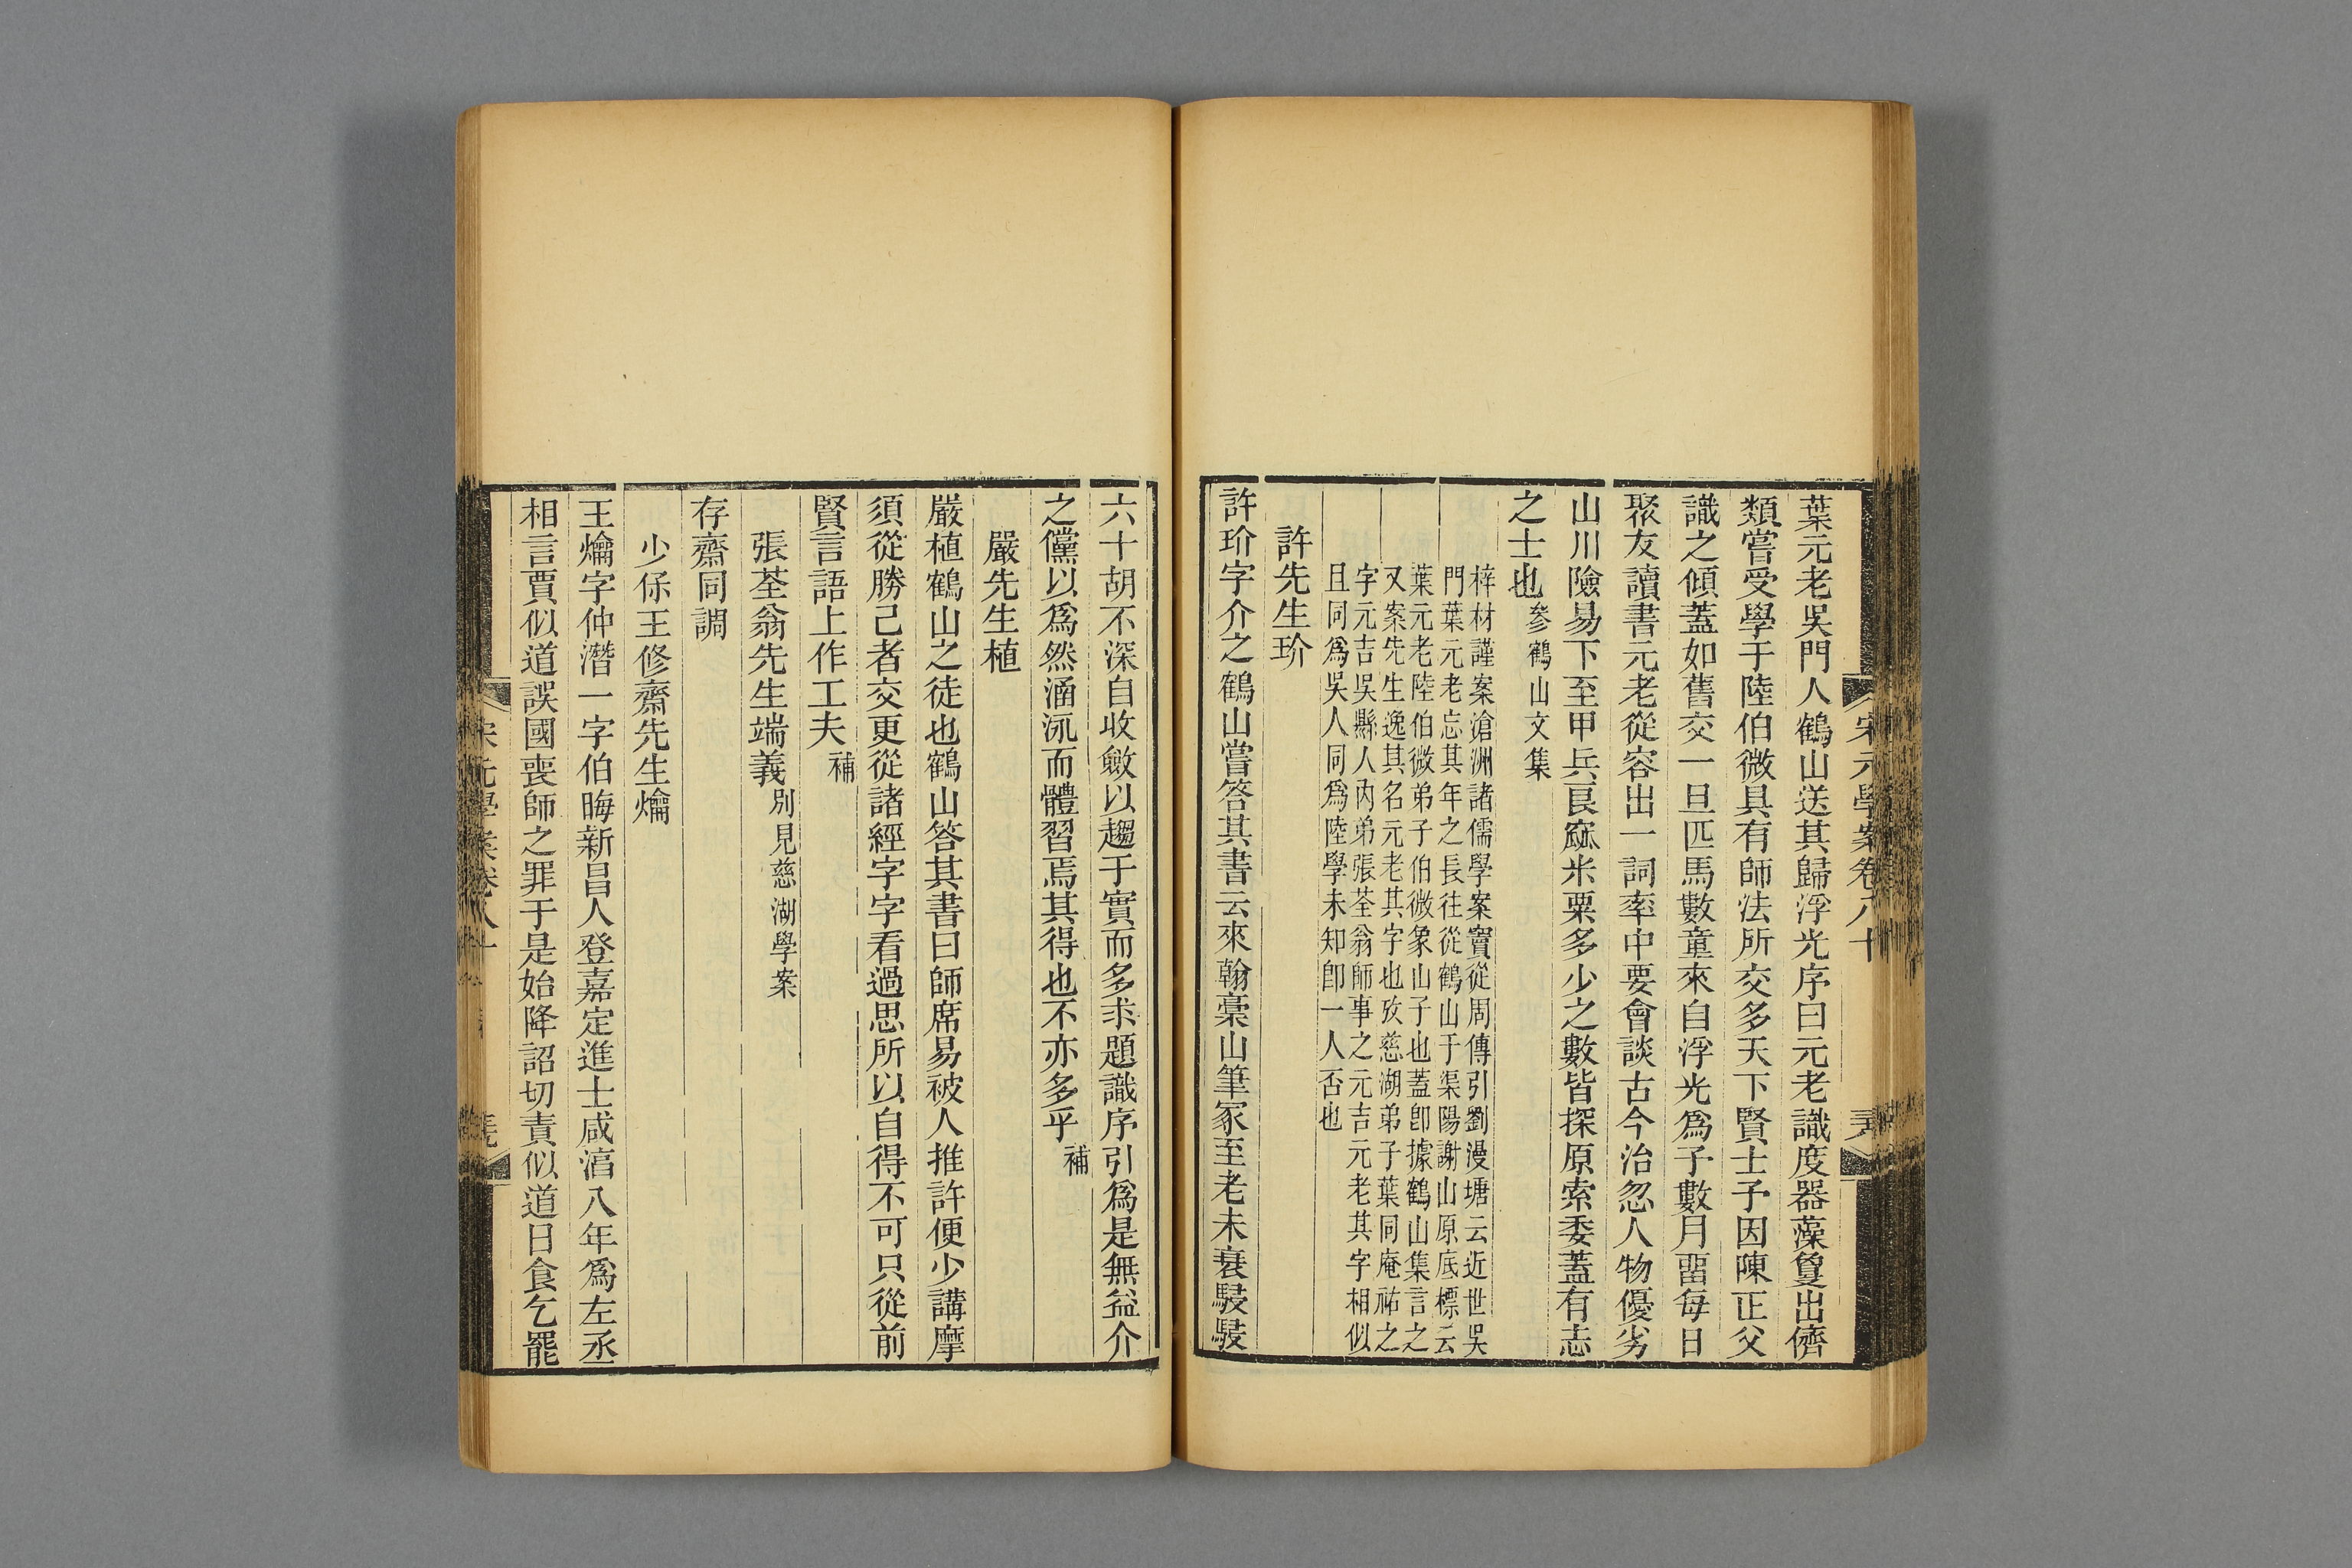 葉元老吳門人鶴山送其歸浮光序曰元老識度器藻敻出儕
類嘗受學于陸伯微具有師法所交多天下賢士予因陳正父
識之傾蓋如舊交一旦匹馬數童來自浮光爲予數月畱每日
聚友讀書元老從容出一詞率中要會談古今治忽人物優劣
山川險易下至甲兵艮窳米粟多少之數皆探原索委蓋有志
之士也參鶴山文集
梓材謹案滄洲諸儒學案竇從周傳引劉漫塘云近世吳
門葉元老忘其年之長往從鶴山于渠陽謝山原底標云
葉元老陸伯微弟子伯微象山子也蓋卽據鶴山集言之
又案先生逸其名元老其字也攷慈湖弟子葉同庵祐之
字元吉吳縣人內弟張荃翁師事之元吉元老其字相似
且同爲吳人同爲陸學未知卽一人否也
許先生玠
許玠字介之鶴山嘗答其書云來翰稾山筆冢至老未衰駸駸
宋元學案卷八十
六十胡不深自收斂以趨于實而多求題識序引爲是無益介
之儻以爲然涵泳而體習焉其得也不亦多乎補
嚴先生植
嚴植鶴山之徒也鶴山答其書曰師席易被人推許便少講摩
須從勝己者交更從諸經字字看過思所以自得不可只從前
賢言語上作工夫補
張荃翁先生端義別見慈湖學案
存齋同調
少保王修齋先生爚
王爚字仲潛一字伯晦新昌人登嘉定進士咸淳八年爲左丞
相言賈似道誤國喪師之罪于是始降詔切責似道日食乞罷
宋元學案卷八十